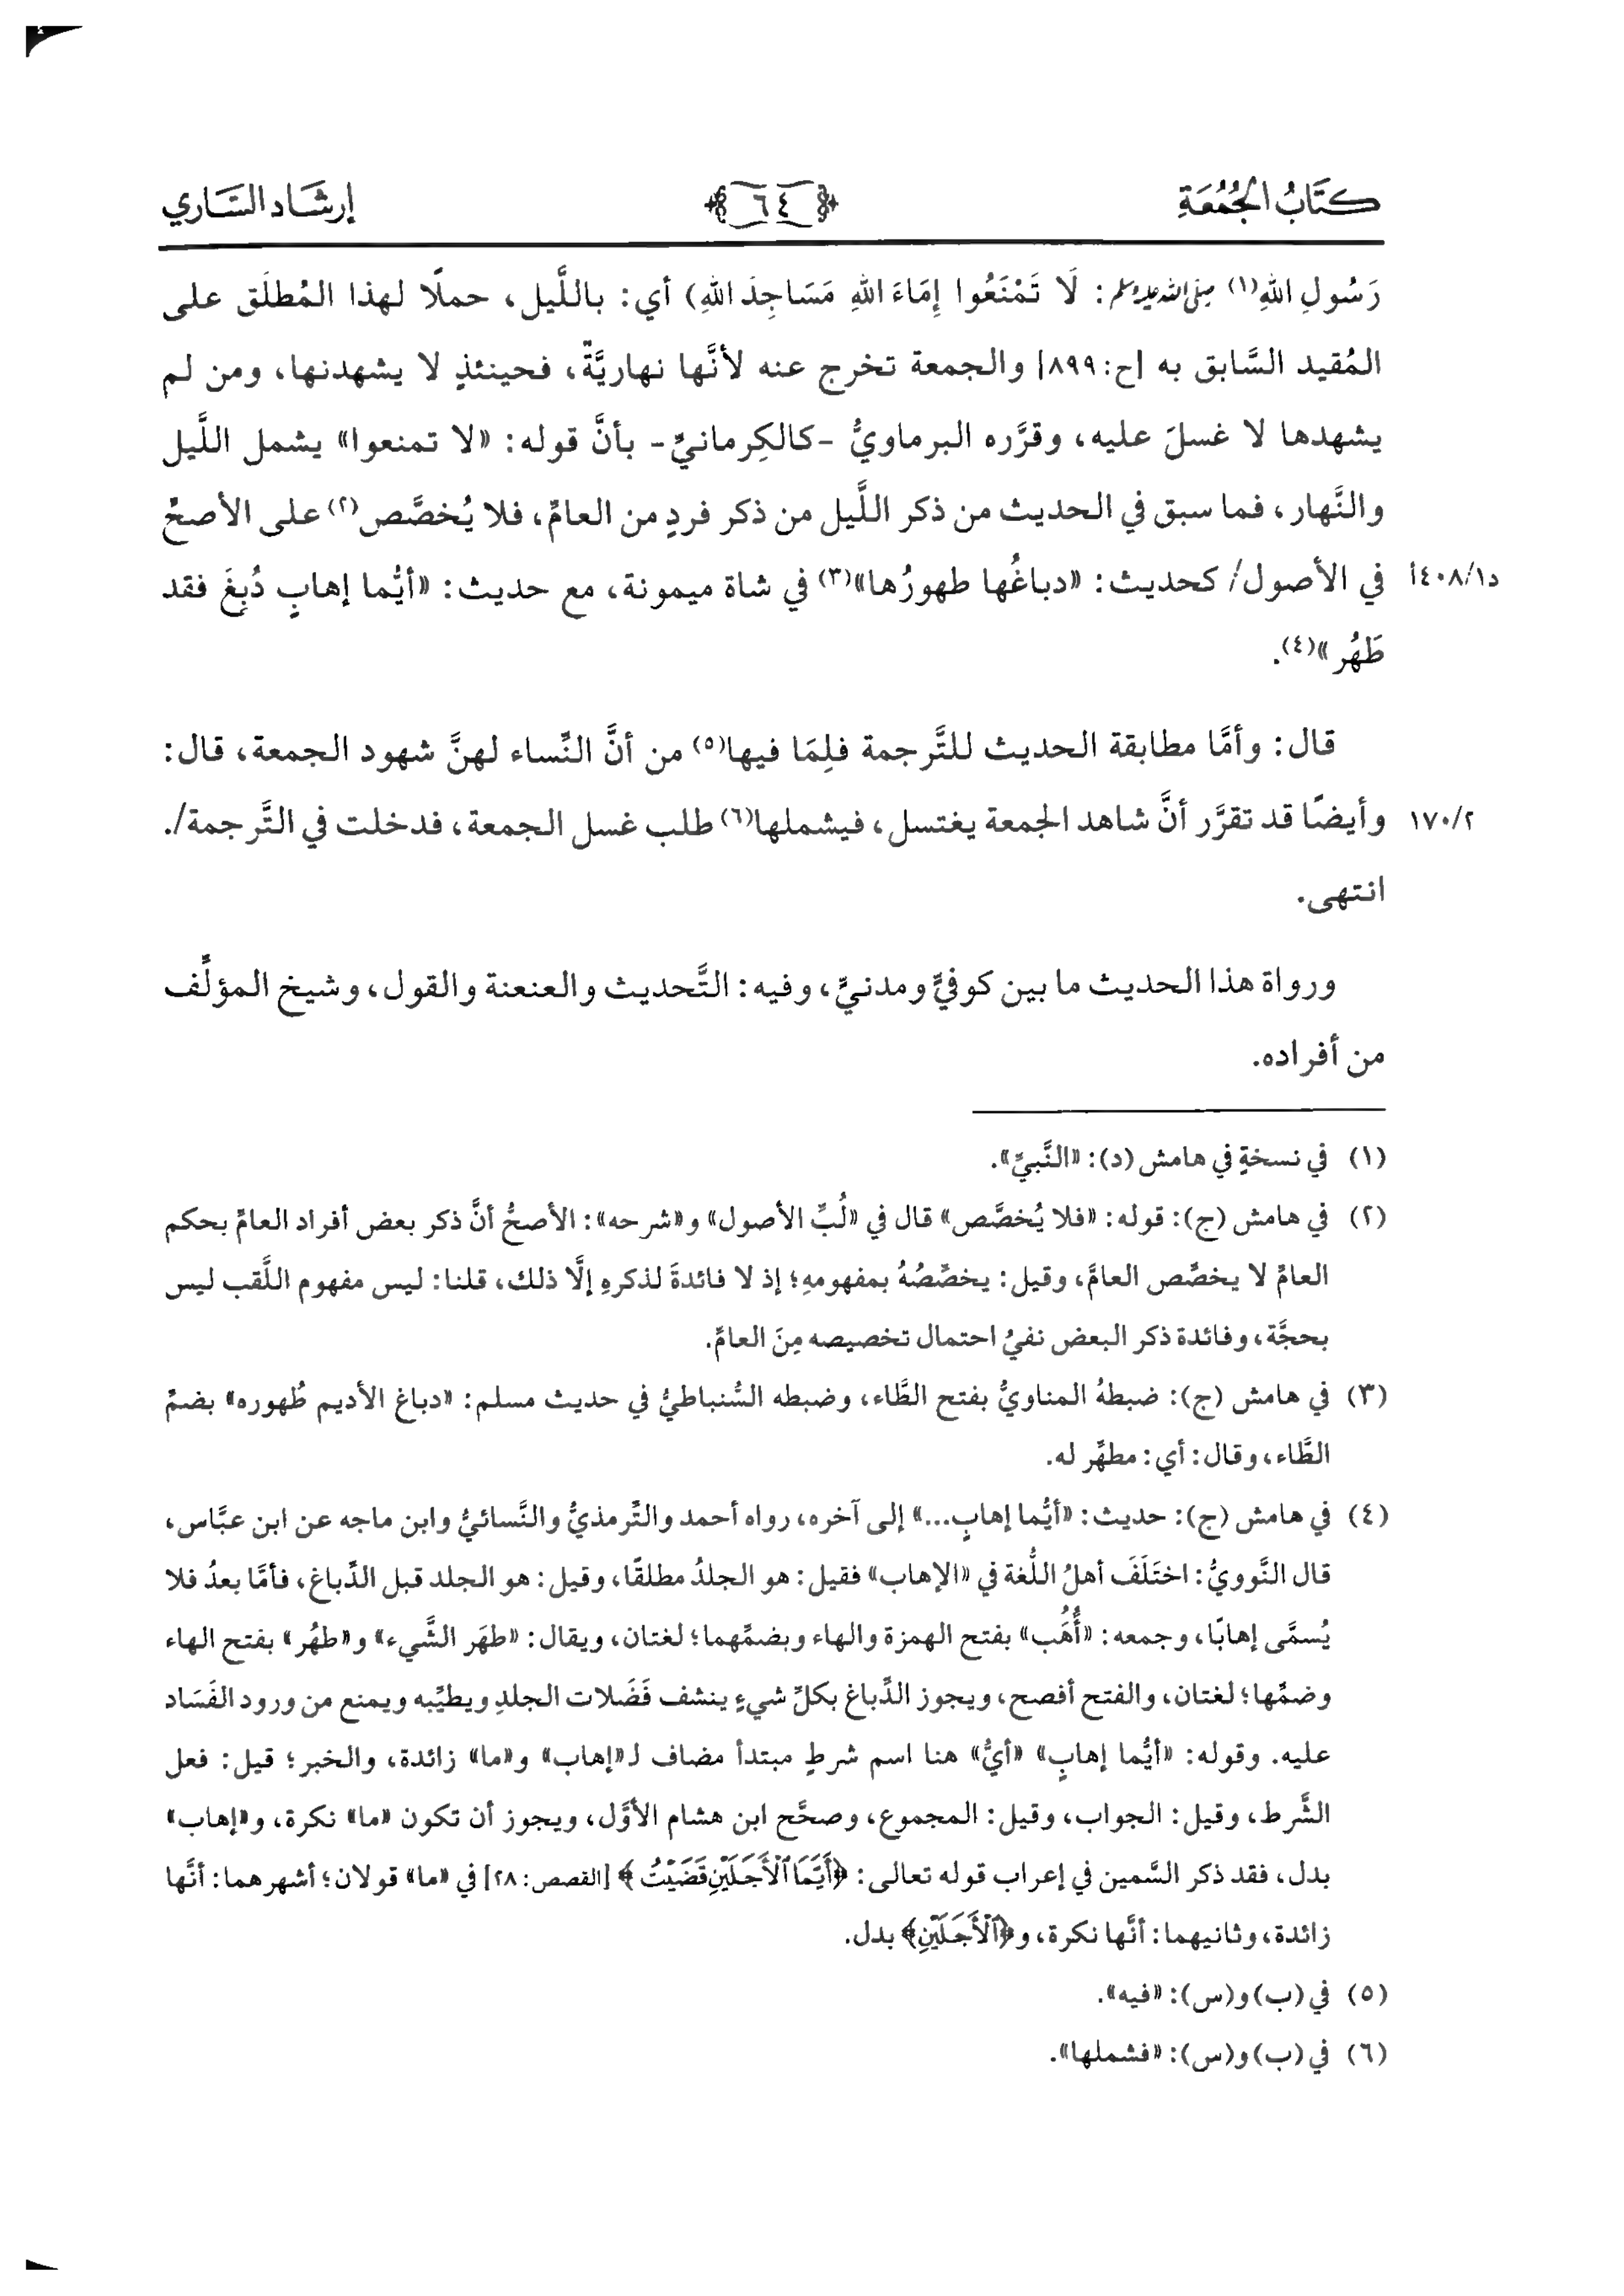 كتاب الجمعة ٦٤ إرشاد الساري
رَسُولِ اللهِ(١) صلى الله عليه وسلم: لَا تَمْنَعُوا إِمَاءَ اللهِ مَسَاجِدَ اللهِ) أي: باللَّيل، حملًا لهذا المُطلَق على
المُقيد السَّابق به [ح: ٨٩٩] والجمعة تخرج عنه لأنَّها نهاريَّةٌ، فحينئذٍ لا يشهدنها، ومن لم
يشهدها لا غسلَ عليه، وقرَّره البرماويُّ -كالكِرمانيِّ- بأنَّ قوله: «لا تمنعوا» يشمل اللَّيل
والنَّهار، فما سبق في الحديث من ذكر اللَّيل من ذكر فردٍ من العامِّ، فلا يُخصَّص(٢) على الأصحِّ
في الأصول/ كحديث: «دباغُها طهورُها»(٣) في شاة ميمونة، مع حديث: «أيُّما إهابٍ دُبِغَ فقد د٤٠٨/١أ
طَهُر»(٤).
قال: وأمَّا مطابقة الحديث للتَّرجمة فلِمَا فيها(٥) من أنَّ النِّساء لهنَّ شهود الجمعة، قال:
وأيضًا قد تقرَّر أنَّ شاهد الجمعة يغتسل، فيشملها(٦) طلب غسل الجمعة، فدخلت في التَّرجمة/. ١٧٠/٢
انتهى.
ورواة هذا الحديث ما بين كوفيٍّ ومدنيٍّ، وفيه: التَّحديث والعنعنة والقول، وشيخ المؤلِّف
من أفراده.
(١) في نسخةٍ في هامش (د): «النَّبيِّ».
(٢) في هامش (ج): قوله: «فلا يُخصَّص» قال في «لُبِّ الأصول» و«شرحه»: الأصحُّ أنَّ ذكر بعض أفراد العامِّ بحكم
العامِّ لا يخصِّص العامَّ، وقيل: يخصِّصُهُ بمفهومهِ؛ إذ لا فائدةَ لذكرهِ إلَّا ذلك، قلنا: ليس مفهوم اللَّقب ليس
بحجَّة، وفائدة ذكر البعض نفيُ احتمال تخصيصه مِنَ العامِّ.
(٣) في هامش (ج): ضبطهُ المناويُّ بفتح الطَّاء، وضبطه السُّنباطيُّ في حديث مسلم: «دباغ الأديم طُهوره» بضمِّ
الطَّاء، وقال: أي: مطهِّر له.
(٤) في هامش (ج): حديث: «أيُّما إهابٍ...» إلى آخره، رواه أحمد والتِّرمذيُّ والنَّسائيُّ وابن ماجه عن ابن عبَّاس،
قال النَّوويُّ: اختَلَفَ أهلُ اللُّغة في «الإهاب» فقيل: هو الجلدُ مطلقًا، وقيل: هو الجلد قبل الدِّباغ، فأمَّا بعدُ فلا
يُسمَّى إهابًا، وجمعه: «أُهَب» بفتح الهمزة والهاء وبضمِّهما؛ لغتان، ويقال: «طهَر الشَّيء» و«طهُر» بفتح الهاء
وضمِّها؛ لغتان، والفتح أفصح، ويجوز الدِّباغ بكلِّ شيءٍ ينشف فَضَلات الجلدِ ويطيِّبه ويمنع من ورود الفَسَاد
عليه. وقوله: «أيُّما إهابٍ» «أيُّ» هنا اسم شرطٍ مبتدأ مضاف لـ«إهاب» و«ما» زائدة، والخبر؛ قيل: فعل
الشَّرط، وقيل: الجواب، وقيل: المجموع، وصحَّح ابن هشام الأوَّل، ويجوز أن تكون «ما» نكرة، و«إهاب»
بدل، فقد ذكر السَّمين في إعراب قوله تعالى: ﴿أَيَّمَا ٱلْأَجَلَيْنِ قَضَيْتُ﴾ [القصص: ٢٨] في «ما» قولان؛ أشهرهما: أنَّها
زائدة، وثانيهما: أنَّها نكرة، و﴿ٱلْأَجَلَيْنِ﴾ بدل.
(٥) في (ب) و(س): «فيه».
(٦) في (ب) و(س): «فشملها».